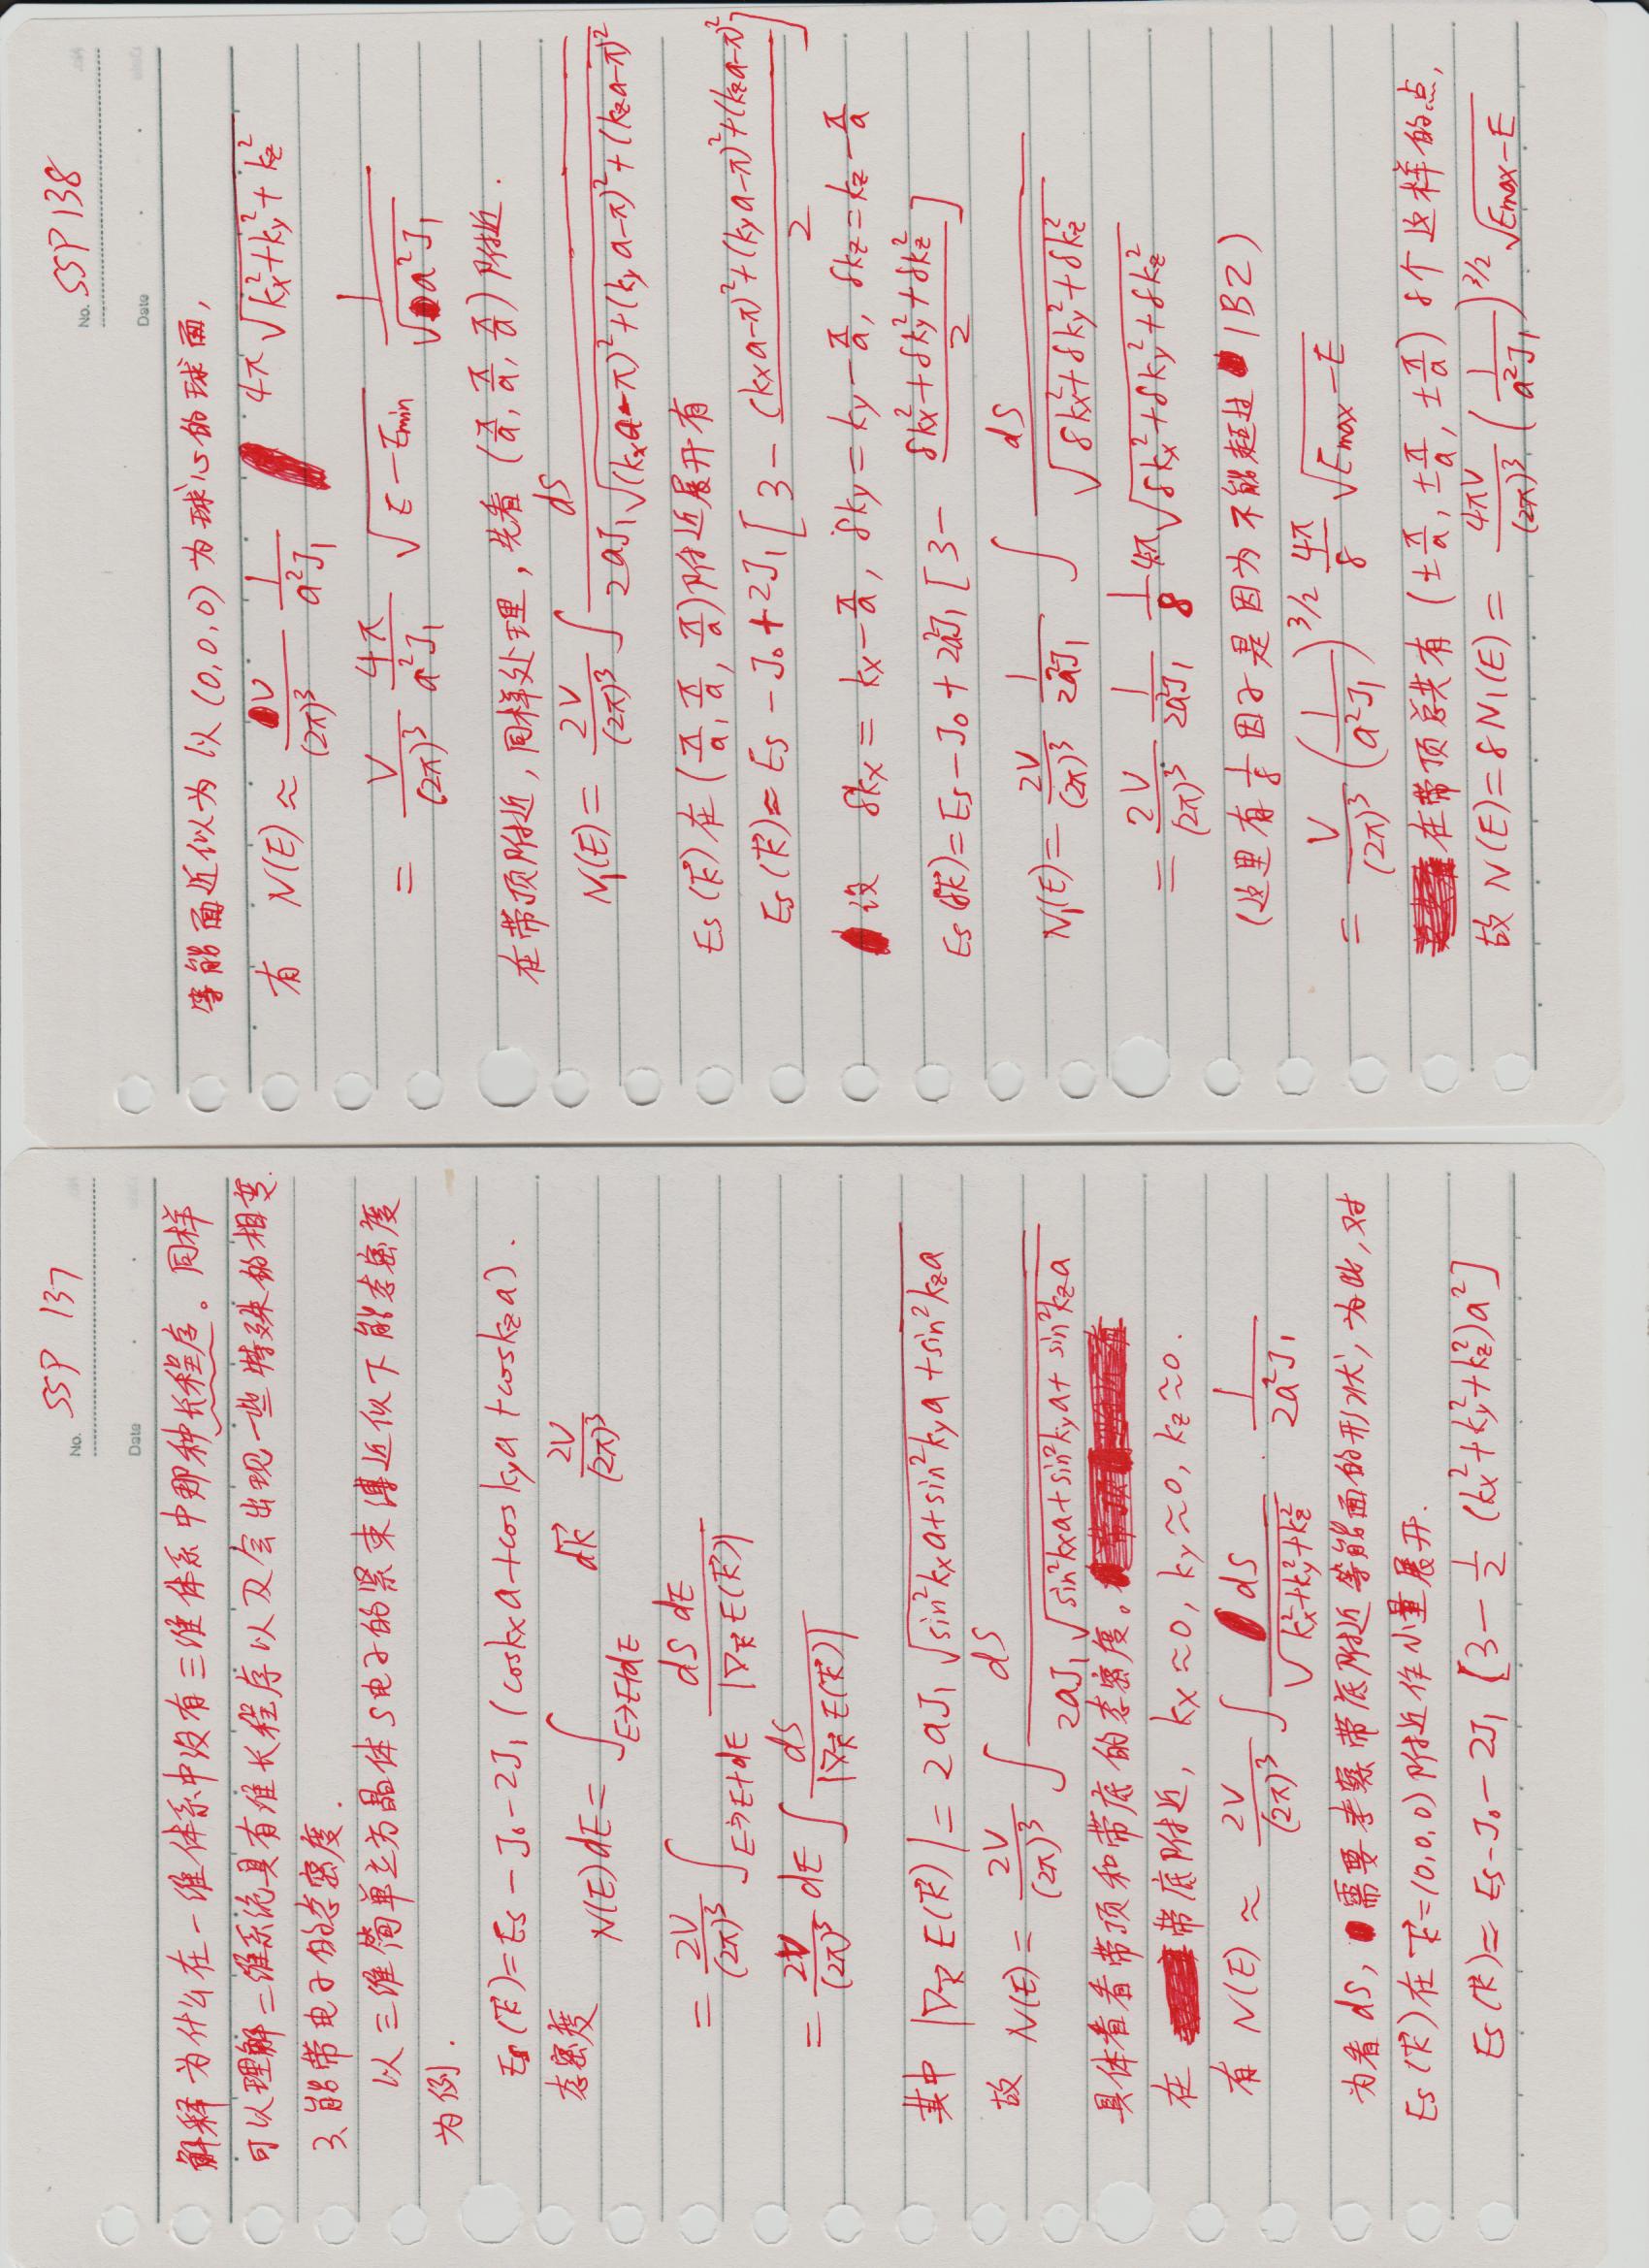 No. SSP 137
Date
解释为什么在一维体系中没有三维体系中那种长程序。同样
可以理解二维系统具有准长程序以及会出现一些特殊的相变.
3、能带电子的态密度.
以三维简单立方晶体S电子的紧束缚近似下能态密度
为例.
Es(k⃗)=Es-J₀-2J₁(coskxa+coskya+coskza).
态密度 N(E)dE=∫_{E→E+dE} dk⃗ 2V/(2π)³
= 2V/(2π)³ ∫_{E→E+dE} dS dE/|∇_k⃗ E(k⃗)|
= 2V/(2π)³ dE ∫ dS/|∇_k⃗ E(k⃗)|
其中 |∇_k⃗ E(k⃗)|=2aJ₁√(sin²kxa+sin²kya+sin²kza)
故 N(E)= 2V/(2π)³ ∫ dS/(2aJ₁√(sin²kxa+sin²kya+sin²kza))
具体看看带顶和带底的态密度。
在带底附近, kx≈0, ky≈0, kz≈0.
有 N(E)≈ 2V/(2π)³ ∫ dS/√(kx²+ky²+kz²) · 1/(2a²J₁)
为看dS, 需要考察带底附近等能面的形状, 为此, 对
Es(k⃗)在k⃗=(0,0,0)附近作小量展开.
Es(k⃗)=Es-J₀-2J₁[3-1/2(kx²+ky²+kz²)a²]
No. SSP 138
Date
等能面近似为以(0,0,0)为球心的球面,
有 N(E)≈ V/(2π)³ 1/(a²J₁) 4π√(kx²+ky²+kz²)
= V/(2π)³ 4π/(a²J₁) √(E-Emin) 1/√(a²J₁)
在带顶附近, 同样处理, 先看(π/a, π/a, π/a)附近.
N₁(E)= 2V/(2π)³ ∫ dS/(2aJ₁√((kxa-π)²+(kya-π)²+(kza-π)²))
Es(k⃗)在(π/a, π/a, π/a)附近展开有
Es(k⃗)≈Es-J₀+2J₁[3-((kxa-π)²+(kya-π)²+(kza-π)²)/2]
设 δkx=kx-π/a, δky=ky-π/a, δkz=kz-π/a
Es(δk⃗)=Es-J₀+2a²J₁[3-(δkx²+δky²+δkz²)/2]
N₁(E)= 2V/(2π)³ 1/(2a²J₁) ∫ dS/√(δkx²+δky²+δkz²)
= 2V/(2π)³ 1/(2a²J₁) 1/8 4π√(δkx²+δky²+δkz²)
(这里有1/8因子是因为不能超过1BZ)
= V/(2π)³ (1/(a²J₁))^{3/2} 4π/8 √(Emax-E)
在带顶总共有(±π/a, ±π/a, ±π/a) 8个这样的点,
故 N(E)=8N₁(E)= 4πV/(2π)³ (1/(a²J₁))^{3/2} √(Emax-E)